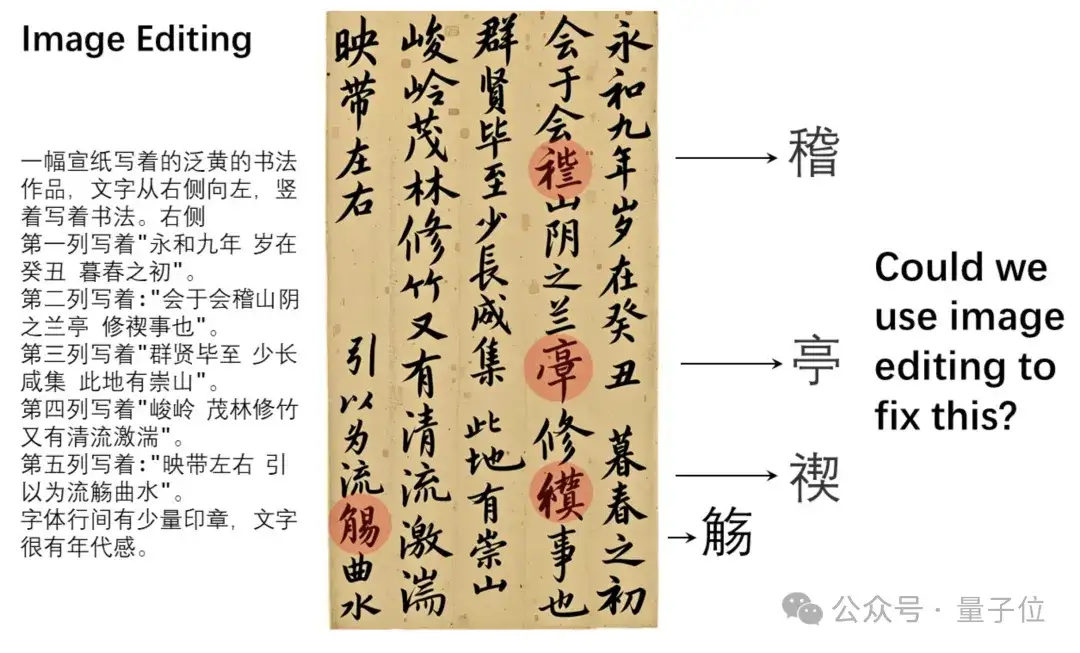 Image Editing
一幅宣纸写着的泛黄的书法
作品，文字从右侧向左，竖
着写着书法。右侧
第一列写着"永和九年 岁在
癸丑 暮春之初"。
第二列写着:"会于会稽山阴
之兰亭 修禊事也"。
第三列写着"群贤毕至 少长
咸集 此地有崇山"。
第四列写着"峻岭 茂林修竹
又有清流激湍"。
第五列写着:"映带左右 引
以为流觞曲水"。
字体行间有少量印章，文字
很有年代感。
永和九年岁在癸丑 暮春之初
会于会山阴之兰 修事也
群贤毕至少長咸集 此地有崇山
峻岭茂林修竹又有清流激湍
映带左右 引以为流曲水
稽
亭
禊
觞
Could we
use image
editing to
fix this?
公众号·量子位